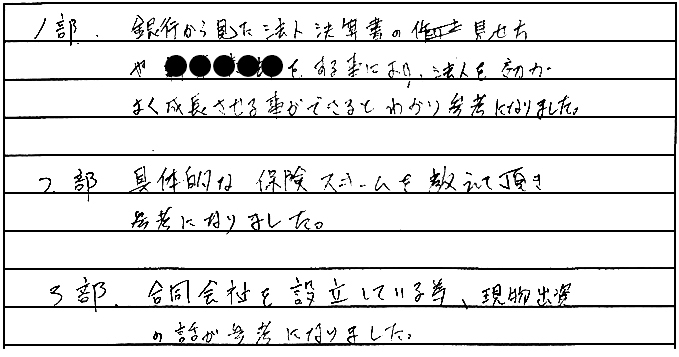 1部. 銀行から見た法人決算書の見せ方
や●●●●●を、する事により、法人を効力
よく成長させる事ができるとわかり参考になりました。
2.部 具体的な保険スキームを教えて頂き
参考になりました。
3部. 合同会社を設立している等、現物出資
の話が参考になりました。